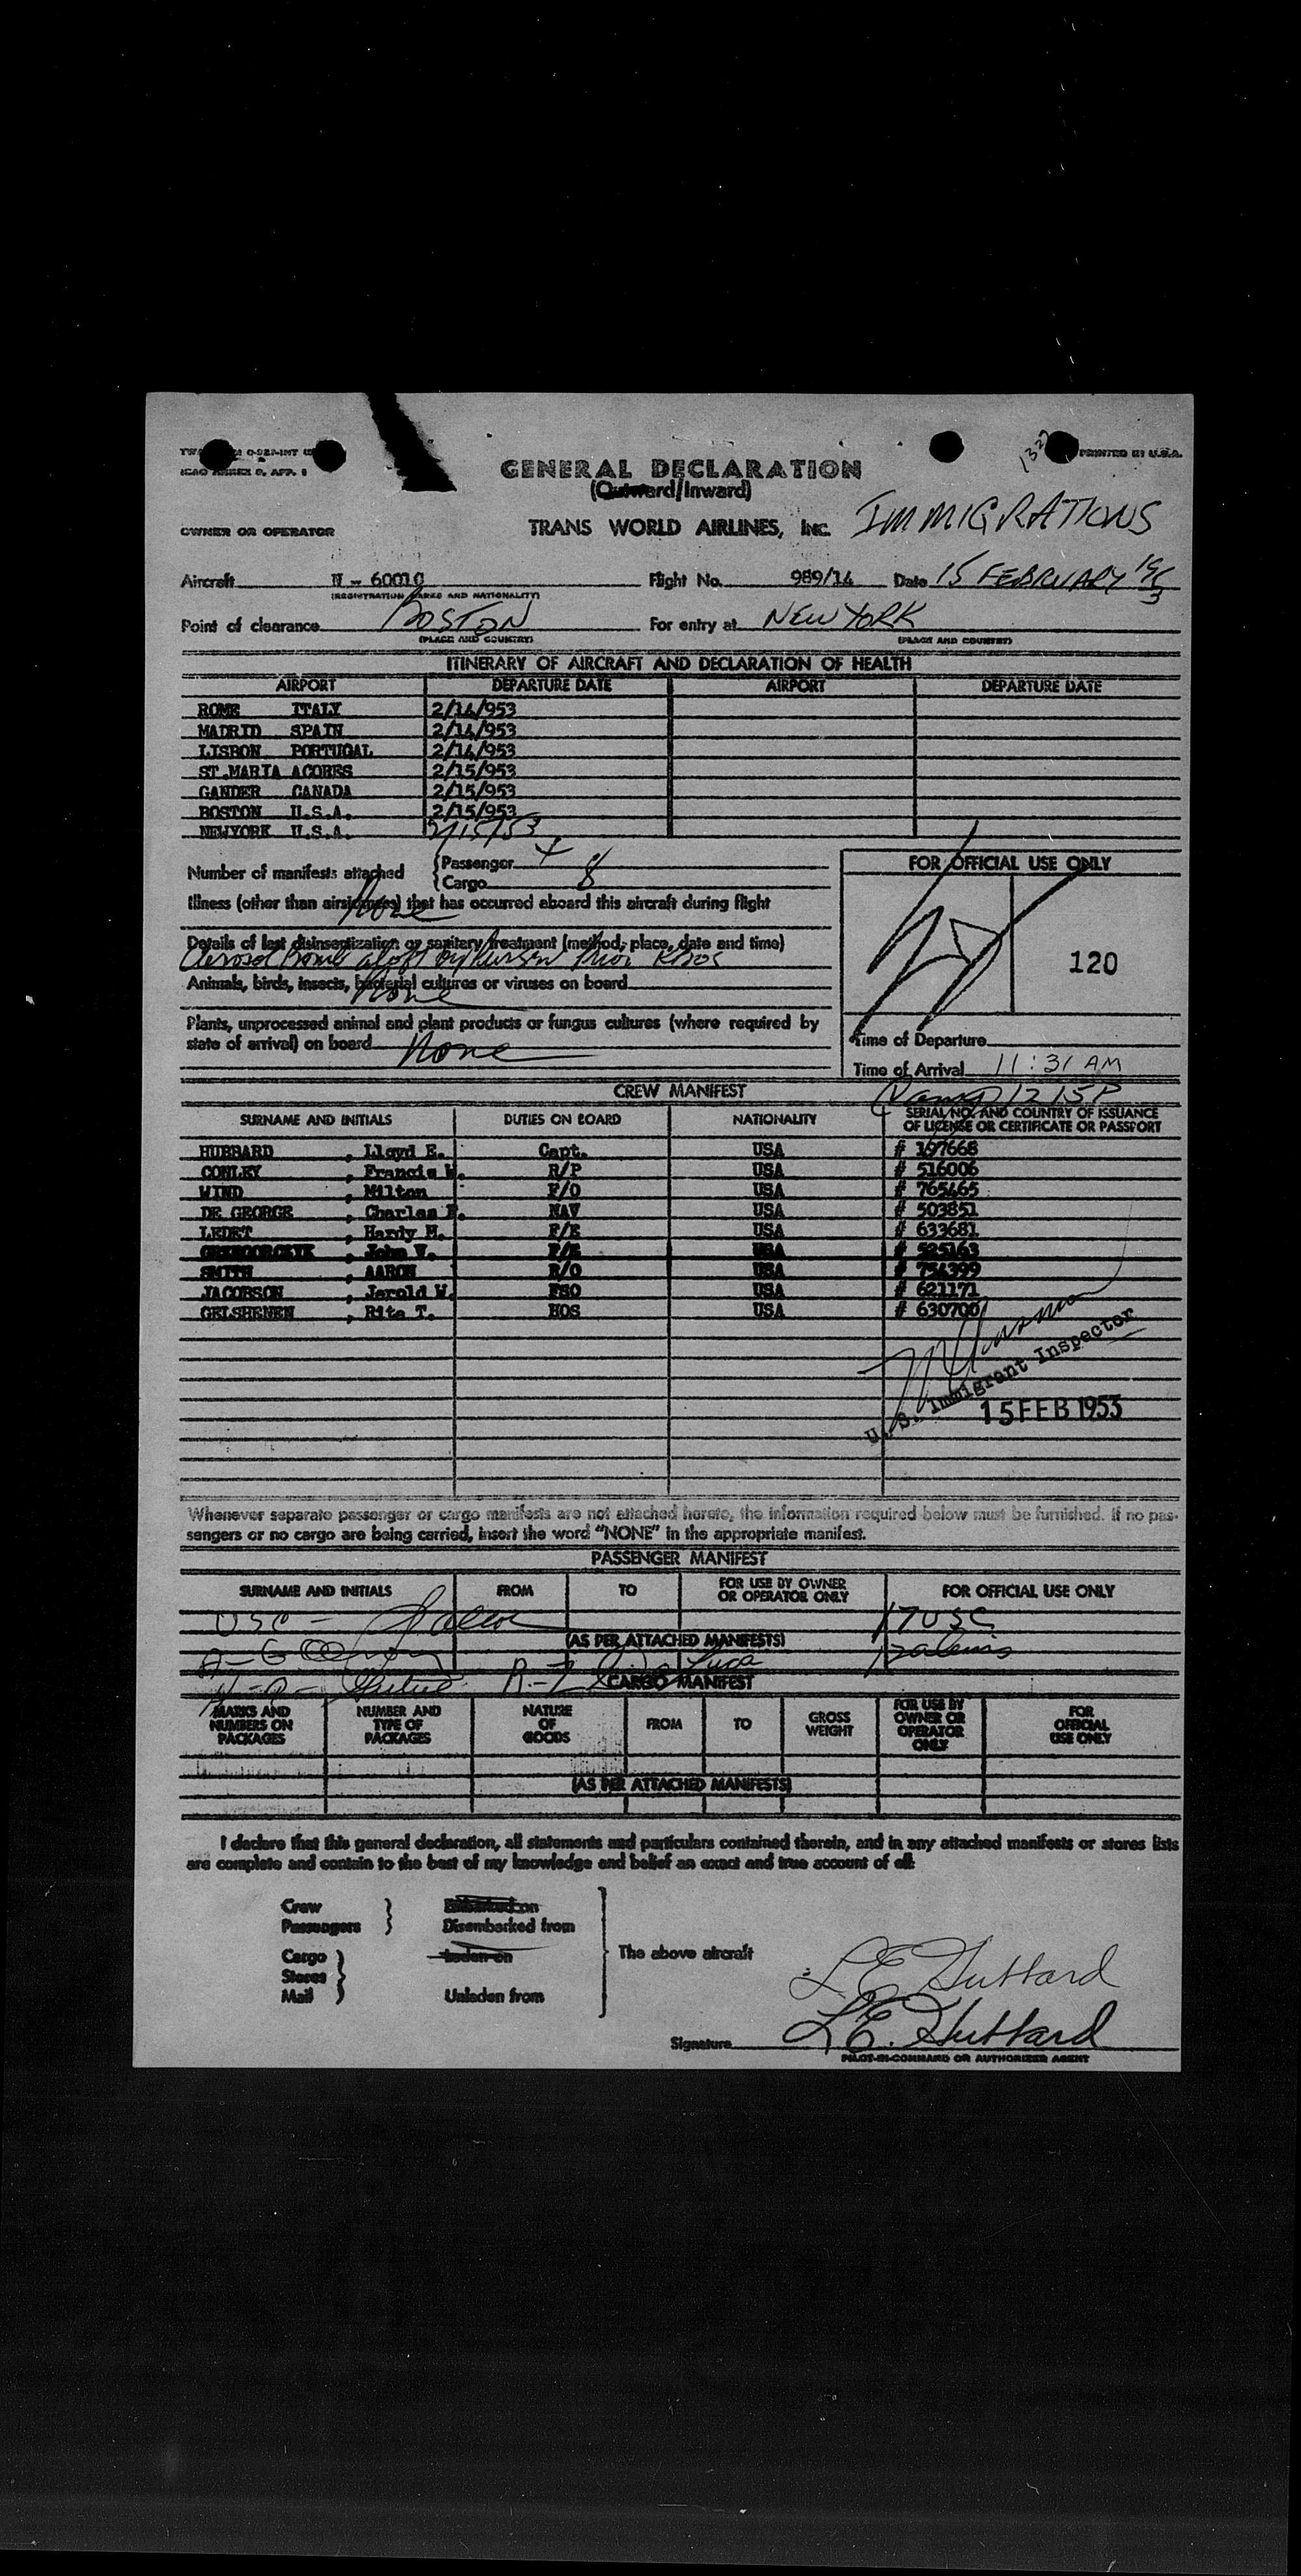 1327
PRINTED IN U.S.A.
GENERAL DECLARATION
(Outward/Inward)
OWNER OR OPERATOR TRANS WORLD AIRLINES, INC. IMMIGRATIONS
Aircraft N - 60010 Flight No. 989/14 Date 15 FEBRUARY 1953
(REGISTRATION MARKS AND NATIONALITY)
Point of clearance BOSTON For entry at NEW YORK
(PLACE AND COUNTRY) (PLACE AND COUNTRY)
ITINERARY OF AIRCRAFT AND DECLARATION OF HEALTH
AIRPORT DEPARTURE DATE AIRPORT DEPARTURE DATE
ROME ITALY 2/14/953
MADRID SPAIN 2/14/953
LISBON PORTUGAL 2/14/953
ST.MARIA ACORES 2/15/953
GANDER CANADA 2/15/953
BOSTON U.S.A. 2/15/953
NEWYORK U.S.A. 2/15/53
Number of manifests attached Passenger 4
Cargo 8
FOR OFFICIAL USE ONLY
Illness (other than airsickness) that has occurred aboard this aircraft during flight
None
Details of last disinsectization or sanitary treatment (method, place, date and time)
Aerosol Bomb aloft by Purser Prior
120
Animals, birds, insects, bacterial cultures or viruses on board
None
Plants, unprocessed animal and plant products or fungus cultures (where required by
state of arrival) on board None
Time of Departure
Time of Arrival 11:31 AM
1215P
CREW MANIFEST
SURNAME AND INITIALS DUTIES ON BOARD NATIONALITY SERIAL NO. AND COUNTRY OF ISSUANCE
OF LICENSE OR CERTIFICATE OR PASSPORT
HUBBARD , Lloyd E. Capt. USA # 197668
CONLEY , Francis W. R/P USA # 516006
WIND , Milton F/O USA # 765465
DE GEORGE , Charles NAV USA # 503851
LEDET , Hardy M. F/E USA # 633681
John V. F/E USA # 525163
SMITH , AARON R/O USA # 754399
JACOBSON , Jerold W. FSO USA # 621171
GELSHENEN , Rita T. HOS USA # 630700
U. S. Immigrant Inspector
15 FEB 1953
Whenever separate passenger or cargo manifests are not attached hereto, the information required below must be furnished. If no pas-
sengers or no cargo are being carried, insert the word "NONE" in the appropriate manifest.
PASSENGER MANIFEST
SURNAME AND INITIALS FROM TO FOR USE BY OWNER
OR OPERATOR ONLY FOR OFFICIAL USE ONLY
USC - 17 USC
(AS PER ATTACHED MANIFESTS)
CARGO MANIFEST
MARKS AND
NUMBERS ON
PACKAGES NUMBER AND
TYPE OF
PACKAGES NATURE
OF
GOODS FROM TO GROSS
WEIGHT FOR USE BY
OWNER OR
OPERATOR
ONLY FOR
OFFICIAL
USE ONLY
(AS PER ATTACHED MANIFESTS)
I declare that this general declaration, all statements and particulars contained therein, and in any attached manifests or stores lists
are complete and contain to the best of my knowledge and belief an exact and true account of all:
Crew Embarked on
Passengers Disembarked from
Cargo Laden on The above aircraft
Stores
Mail Unladen from
L E Hubbard
Signature L E. Hubbard
PILOT-IN-COMMAND OR AUTHORIZED AGENT